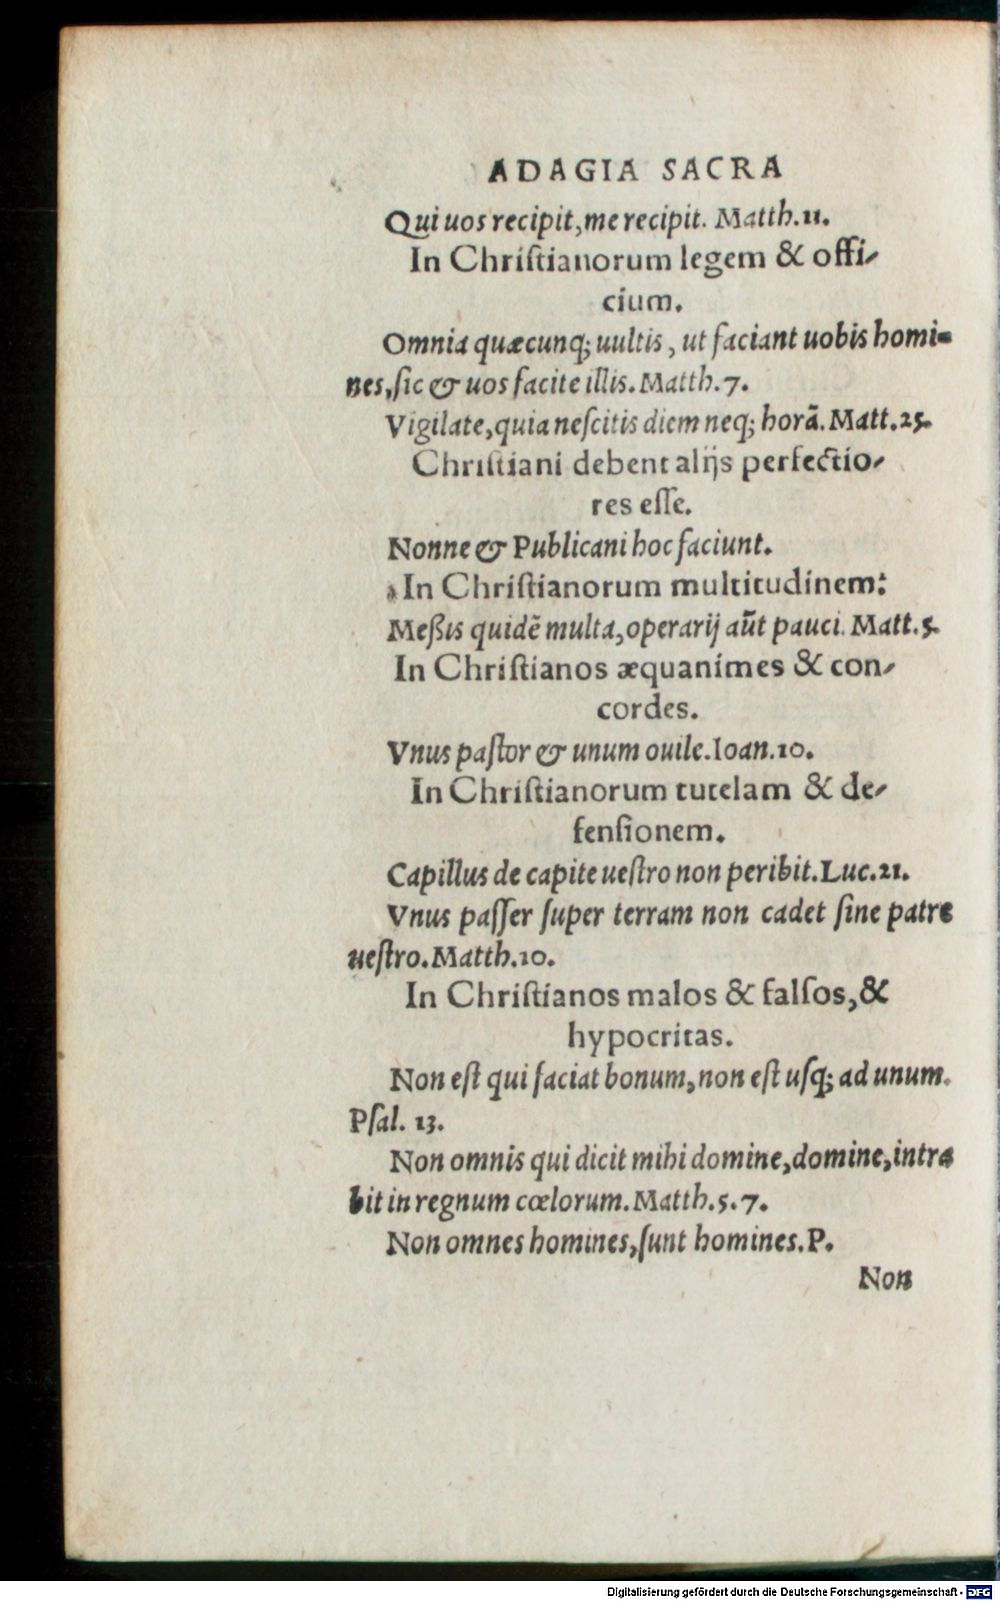 ADAGIA SACRA
Qui uos recipit, me recipit. Matth. 11.
In Chriſtianorum legem & offi-
cium.
Omnia quæcunq; uultis, ut faciant uobis homi-
nes, ſic & uos facite illis. Matth. 7.
Vigilate, quia neſcitis diem neq; horã. Matt. 25.
Chriſtiani debent alijs perfectio-
res eſſe.
Nonne & Publicani hoc faciunt.
In Chriſtianorum multitudinem:
Meßis quidẽ multa, operarij aũt pauci. Matt. 5.
In Chriſtianos æquanimes & con-
cordes.
Vnus paſtor & unum ouile. Ioan. 10.
In Chriſtianorum tutelam & de-
fenſionem.
Capillus de capite ueſtro non peribit. Luc. 21.
Vnus paſſer ſuper terram non cadet ſine patre
ueſtro. Matth. 10.
In Chriſtianos malos & falſos, &
hypocritas.
Non eſt qui faciat bonum, non eſt uſq; ad unum.
Pſal. 13.
Non omnis qui dicit mihi domine, domine, intra
bit in regnum cœlorum. Matth. 5. 7.
Non omnes homines, ſunt homines. P.
Non
Digitalisierung gefördert durch die Deutsche Forschungsgemeinschaft - DFG